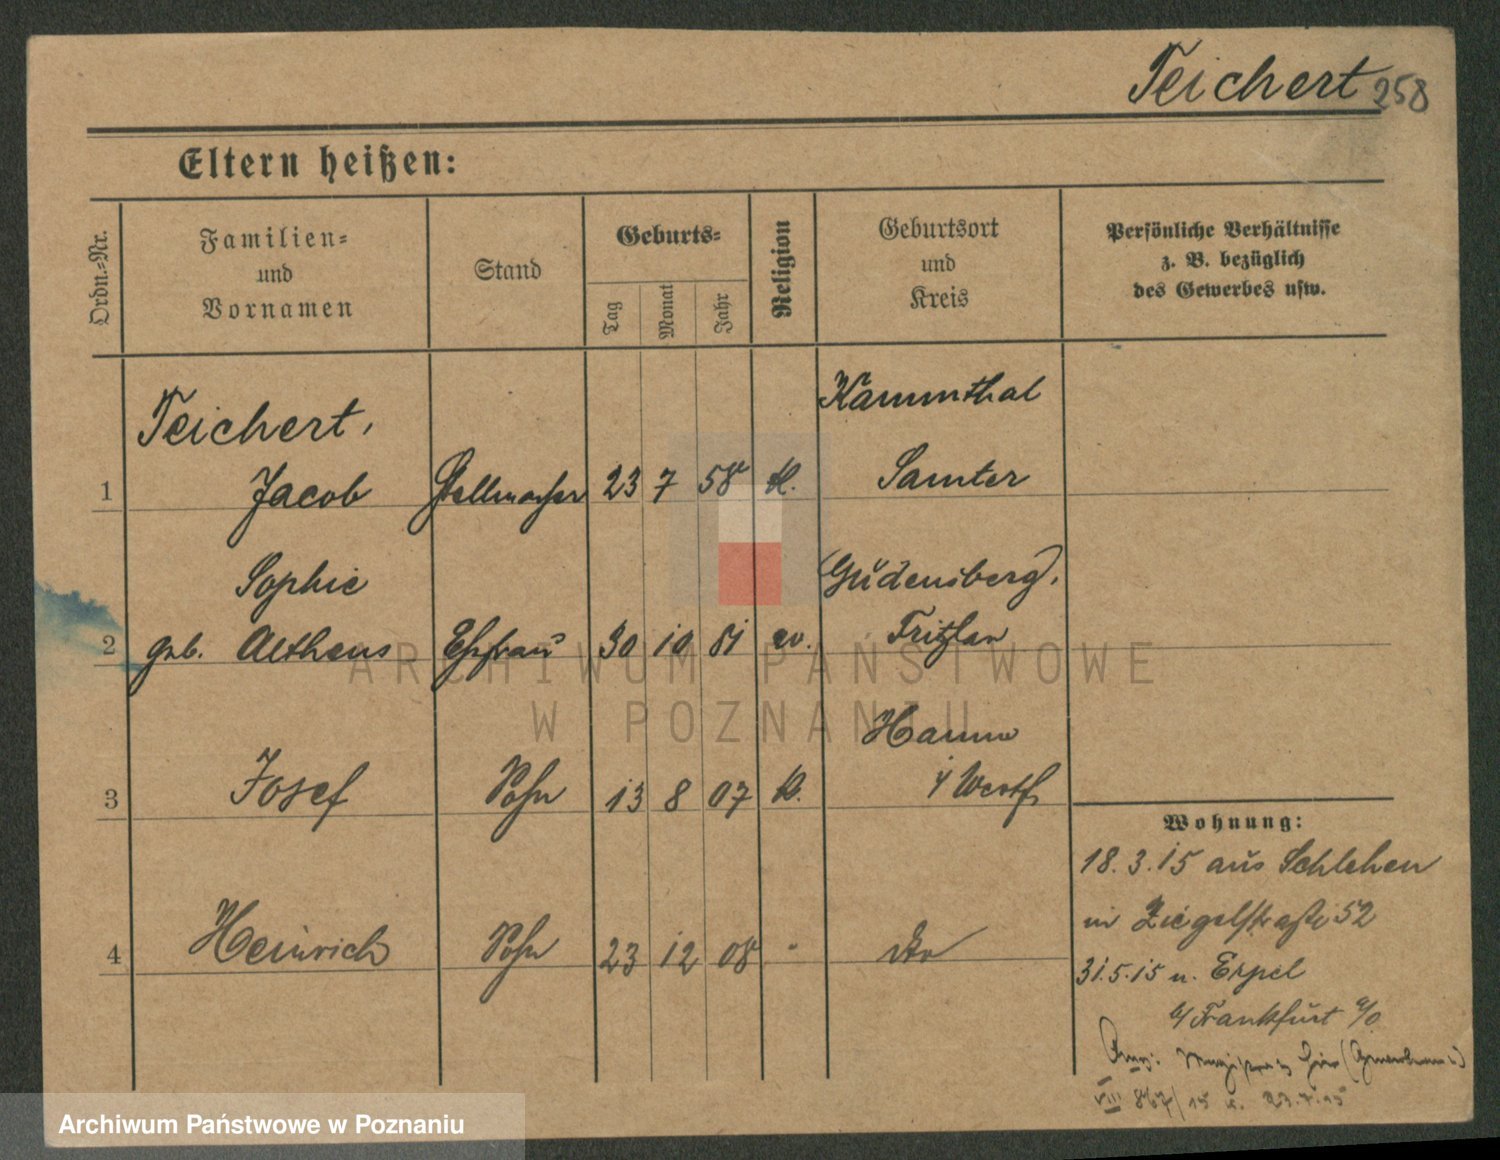 Teichert 258
Eltern heißen:
Ordn.-Nr.
Familien-
und
Vornamen
Stand
Geburts-
Tag
Monat
Jahr
Religion
Geburtsort
und
Kreis
Persönliche Verhältnisse
z. B. bezüglich
des Gewerbes usw.
Teichert,
Kammthal
1 Jacob Stellmacher 23 7 58 k. Samter
Sophie Gudensberg,
2 geb. Altheus Ehefrau 30 10 81 ev. Fritzlar
Hamm
3 Josef Sohn 13 8 07 k. i/ Westf
4 Heinrich Sohn 23 12 08 " do
Wohnung:
18.3.15 aus Schlehen
in Ziegelstraße 52
31.5.15 n. Erpel
b/ Frankfurt a/O
VIII 867/15 v. 23.7.15
ARCHIWUM PAŃSTWOWE
W POZNANIU
Archiwum Państwowe w Poznaniu